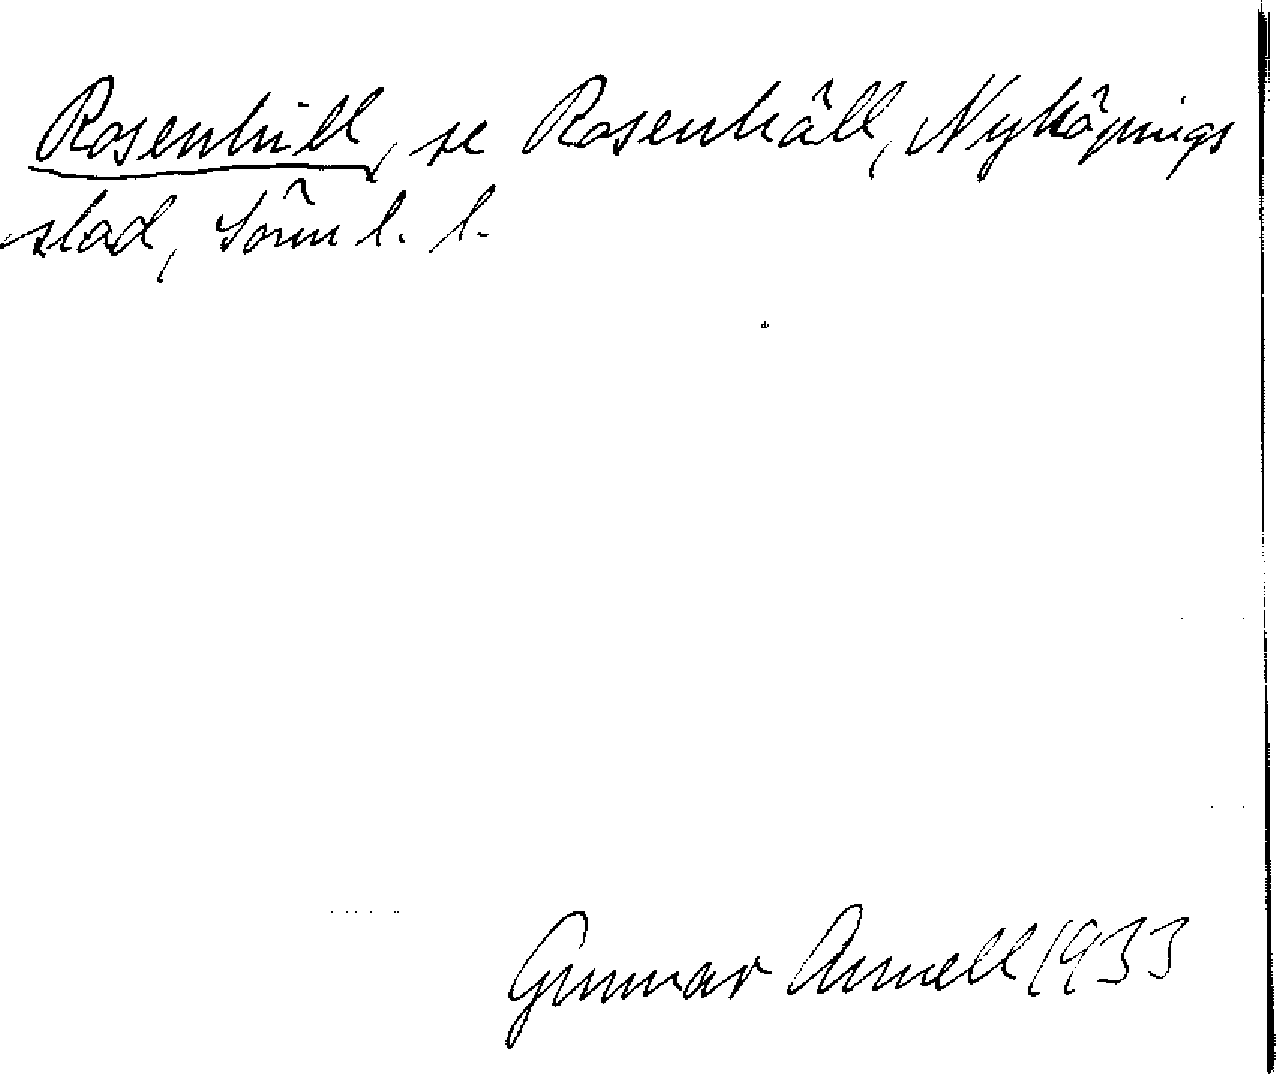 Rosenhill, se Rosenhäll, Nyköpings
stad, Sörml. l.
Gunnar Arnell 1933